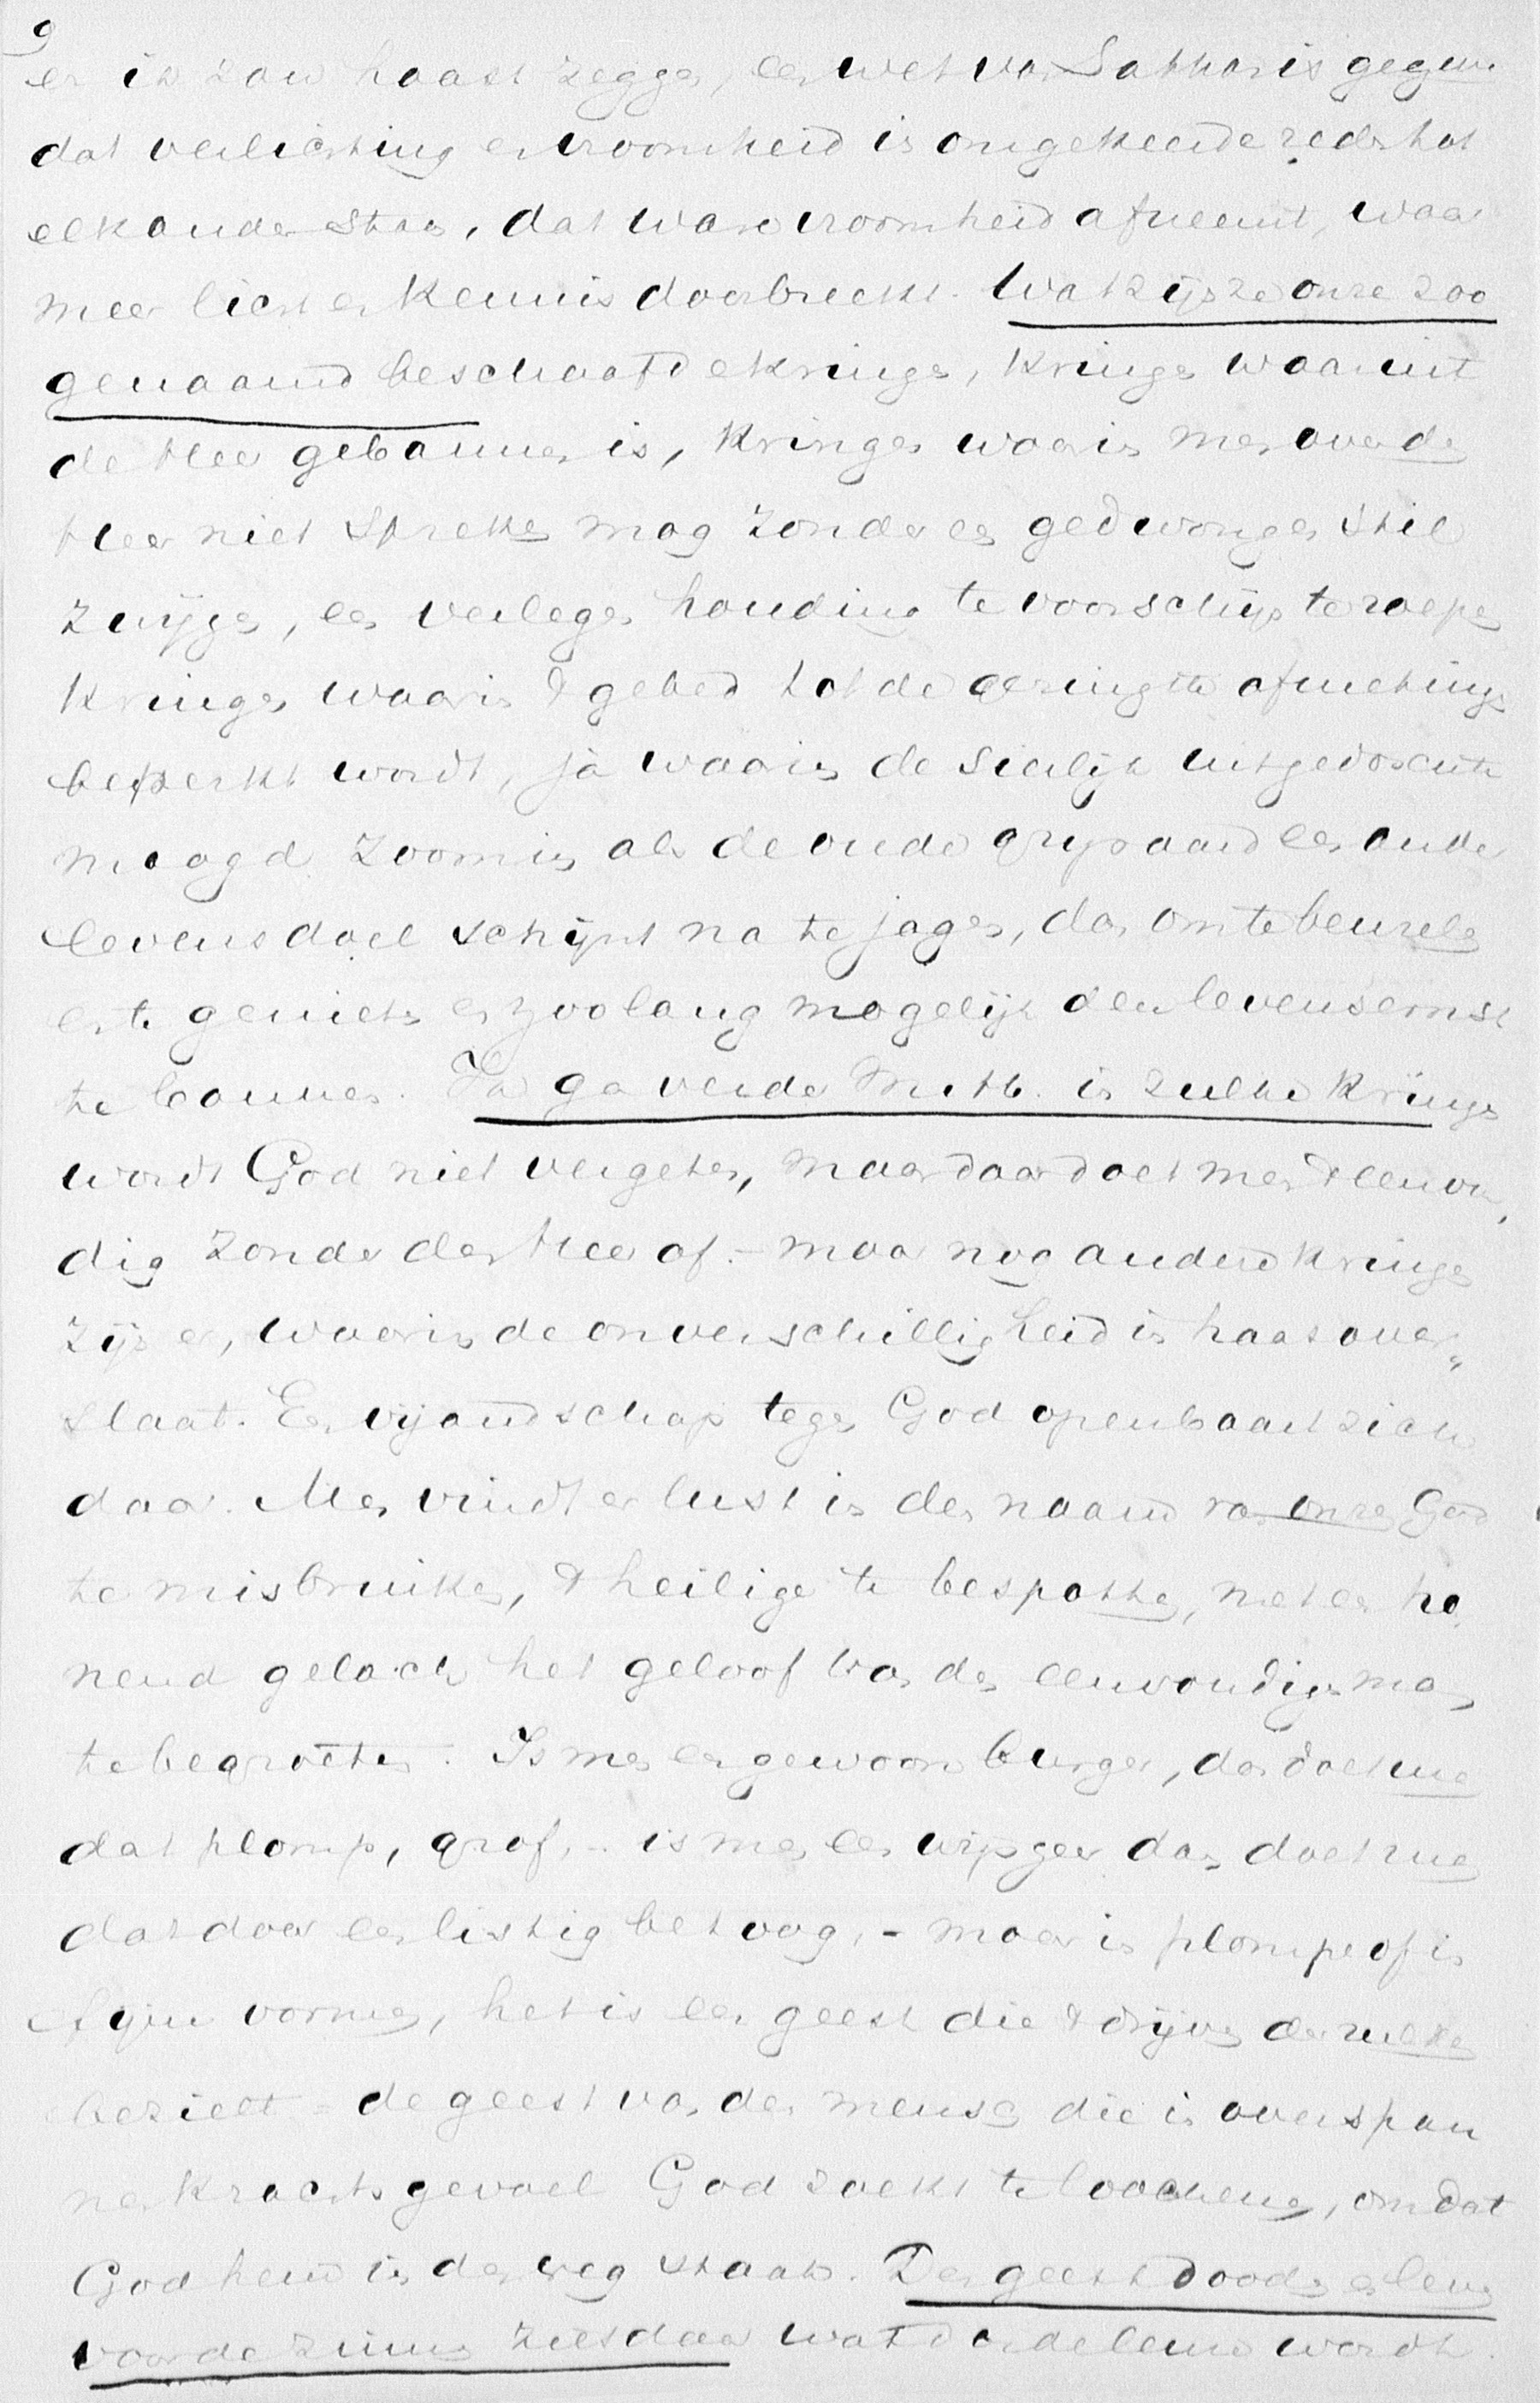 9
en ik zou haast zeggen, een wet van Sathan is gegeven
dat verlichting en vroomheid in omgekeerde reden tot
elkander staan, dat ware vroomheid afneemt, waar
meer licht en kennis doorbreekt. Wat zijn ze onze zoo
genaamd beschaafde kringen, kringen waaruit
de Heer gebannen is, kringen waarin men over den
Heer niet spreken mag zonder een gedwongen stil
zwijgen, een verlegen houding te voorschijn te roepen
kringen waarin 't gebed tot de geringste afmetingen
beperkt wordt, ja waarin de sierlijk uitgedoschte
maagd zoomin als de oude grijsaard een ander
levensdoel schijnt na te jagen, dan om te beuzelen
en te genieten en zoolang mogelijk den levensernst
te bannen. Ja ga verder M. H. in zulke kringen
wordt God niet vergeten, maar daar doet men 't eenvou
dig zonder den Heer af. - maar nog andere kringen
zijn er, waarin de onverschilligheid in haat over„
slaat. En vijandschap tegen God openbaart zich
daar. Men vindt er lust in den naam van onzen God
te misbruiken, 't heilige te bespotten, met een ho
nend gelach het geloof van den eenvoudigen man
te begroeten. Is men een gewoon burger, dan doet men
dat plomp, grof, - is men een wijsgeer dan doet men
dat door een listig betoog, - maar in plompe of in
fijne vormen, het is een geest die 't drijven der zulken
bezielt = de geest van den mensch die in overspan
nen krachtsgevoel God zoekt te loochenen, omdat
God hem in den weg staat. Den geest dooden en leven
voor de zinnen ziet daar wat d' andere leuze wordt.